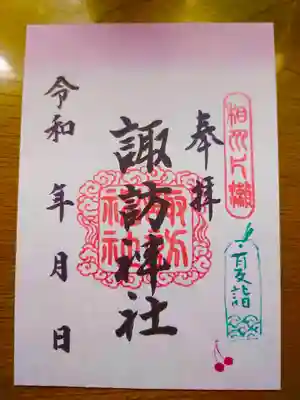 奉拝
相州片瀬
夏詣
諏訪神社
諏訪神社
令和 年 月 日